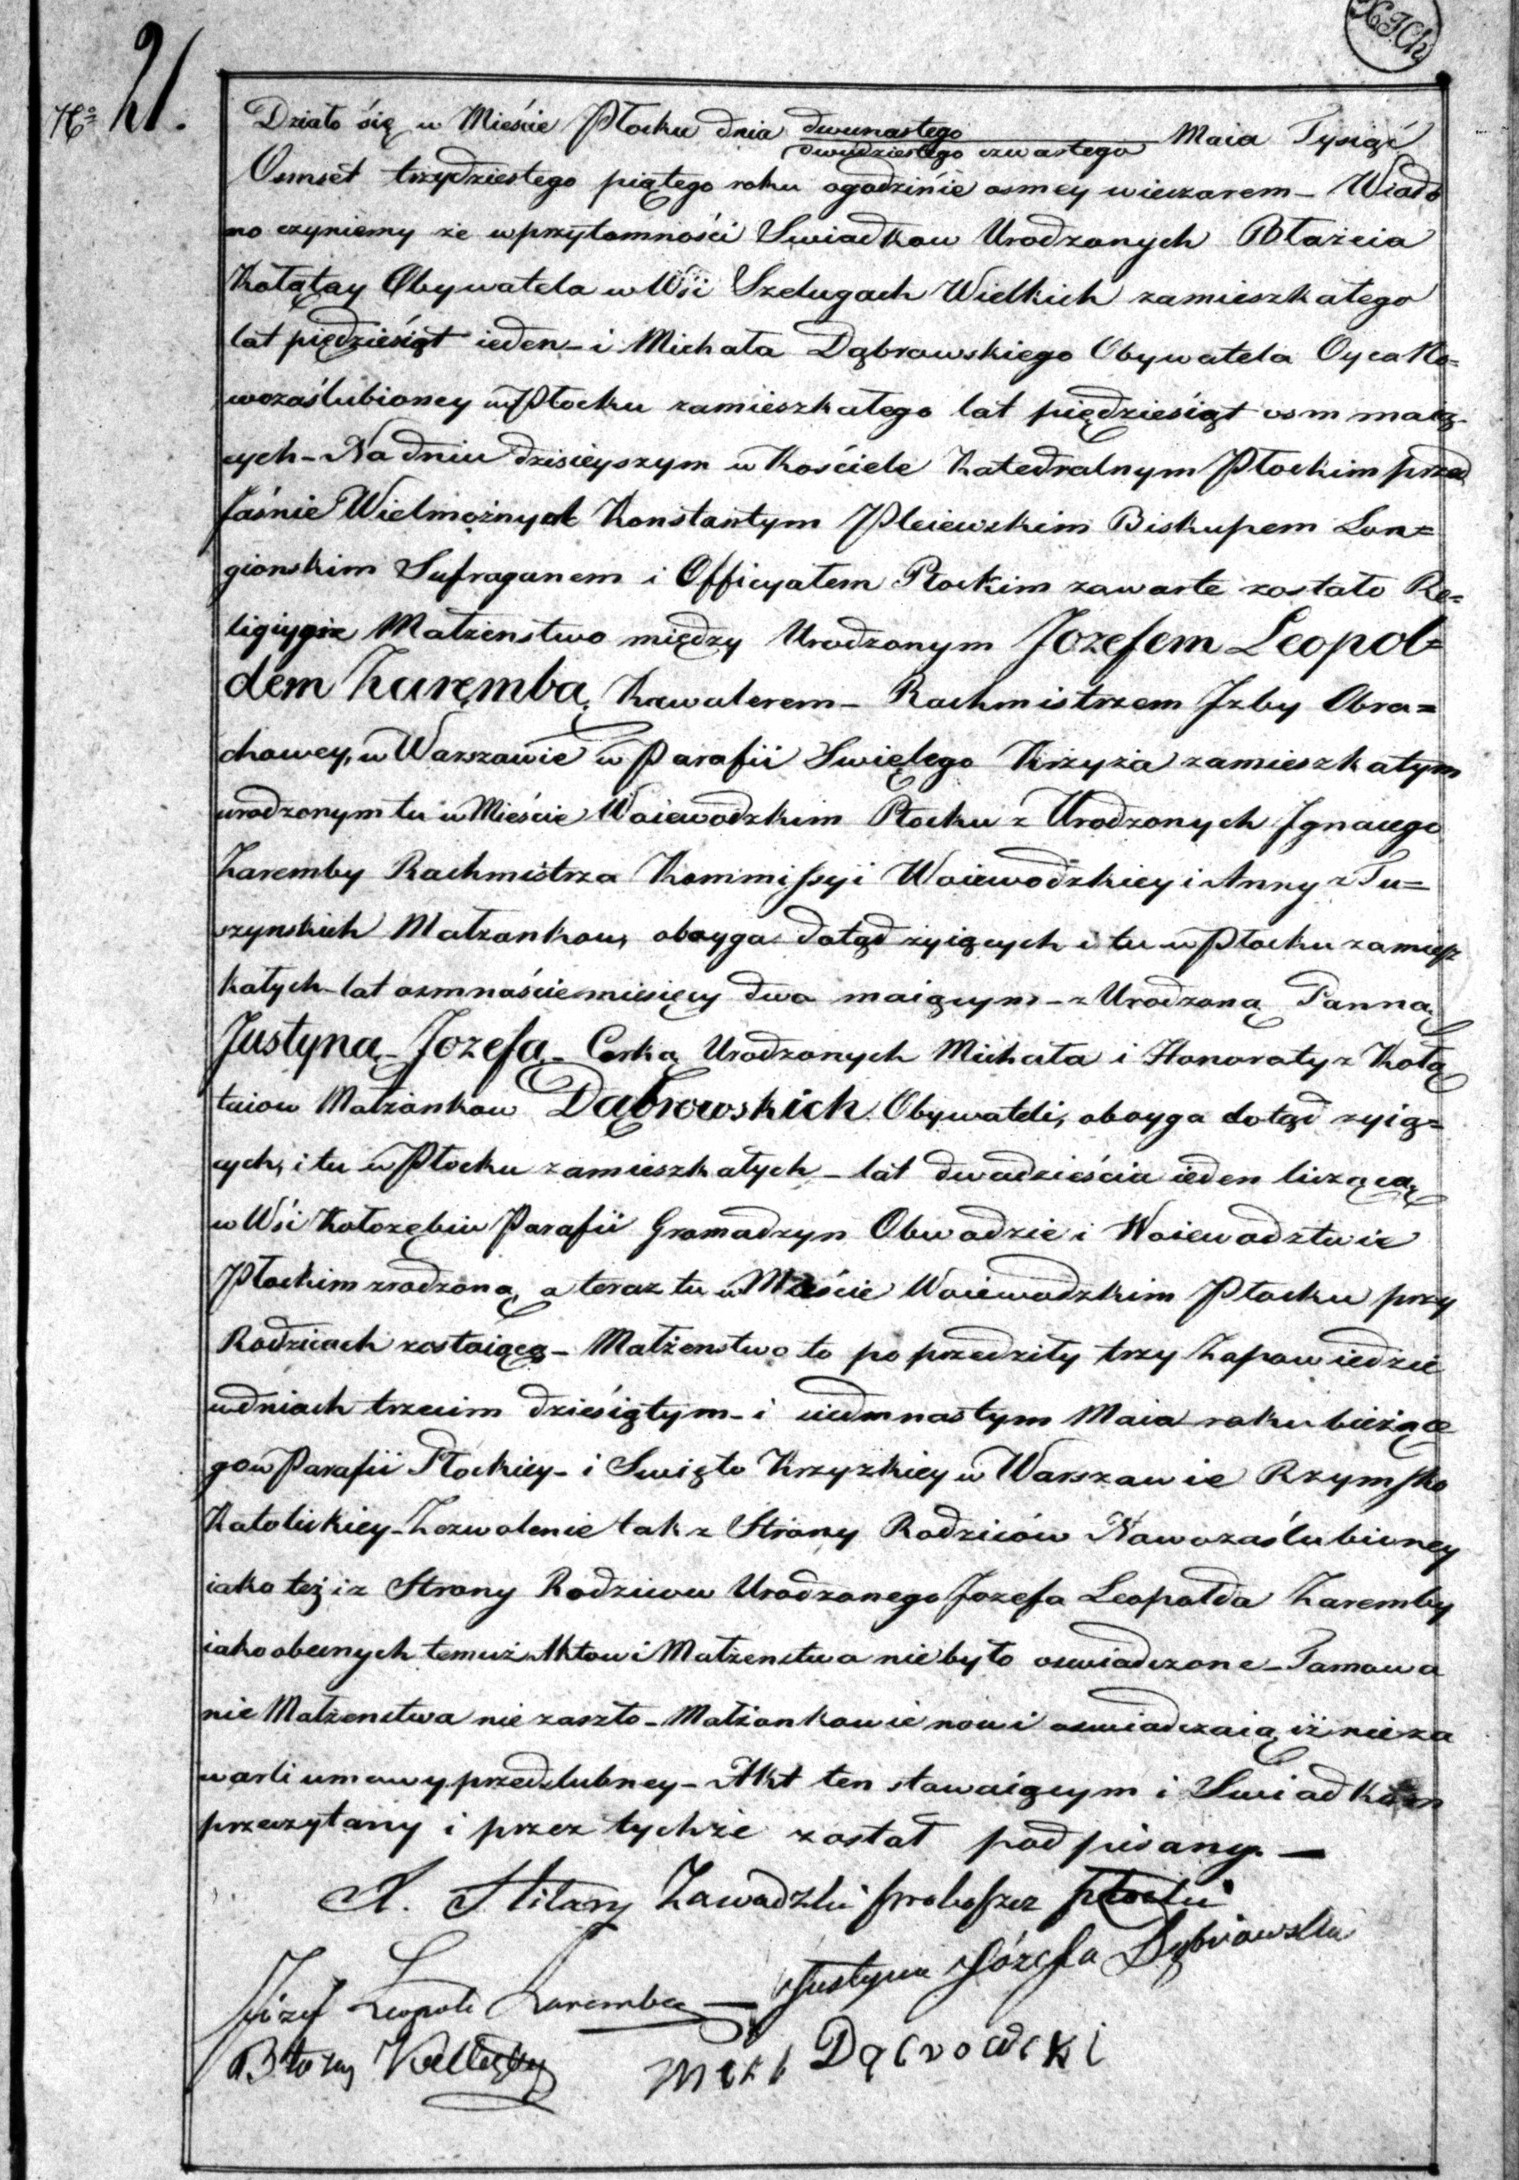 X.J.Ch.
No 21.
Działo się w Mieście Płocku dnia dwunastego Maia Tysiąć
dwudziestego czwartego
Osmset trzydziestego piątego roku ogodzinie osmey wieczorem - Wiado
mo czyniemy że wprzytomności Swiadkow Urodzonych Błażeia
Kołątay Obywatela w Wsi Szeługach Wielkich zamieszkałego
lat pięędziesiąt ieden - i Michała Dąbrowskiego Obywatela Oyca No=
wozaślubioney w Płocku zamieszkałego lat pięędziesiąt osm maią-
cych - Na dniu dzisieyszym w Kościele Katedralnym Płockim przed
Jaśnie Wielmożnym Konstantym Plejewskim Biskupem Lon=
gionskim Sufraganem i Officyałem Płockim zawarte zostało Re=
ligiyne Małżenstwo między Urodzonym Jozefem Leopol=
dem Zarembą, Kawalerem - Rachmistrzem Jzby Obra=
chowey, w Warszawie w Parafii Swiętego Krzyża zamieszkałym
urodzonym tu w Mieście Woiewodzkim Płocku z Urodzonych Jgnacego
Zaremby Rachmistrza Kommissyi Woiewodzkiey i Anny z Tu=
szynskich Małżonkow, oboyga dotąd żyiących i tu w Płocku zamiesz
kałych - lat osmnaście miesięcy dwa maiącym - z Urodzoną Panną
Justyną - Jozefą - Corką Urodzonych Michała i Honoraty z Kołą
taiow Małżonkow Dąbrowskich Obywateli, oboyga dotąd żyią=
cych, i tu w Płocku zamieszkałych - lat dwadzieścia ieden liczącą
w Wsi Kołozębiu Parafii Gromadzyn Obwodzie i Woiewodztwie
Płockim zrodzoną, a teraz tu w Mieście Woiewodzkim Płocku przy
Rodzicach zostaiącą - Małżenstwo to poprzedziły trzy Zapowiedzie
w dniach trzecim dziesiątym - i siedmnastym Maia roku bieżące
go w Parafii Płockiey - i Swięto Krzyzkiey w Warszawie Rzymsko
Katolickiey - Zezwolenie tak z Strony Rodziców Nowozaślubioney
iako też i z Strony Rodzicow Urodzonego Jozefa Leopolda Zaremby
iako obecnych temuż Aktowi Małżenstwa nie było oswiadczone - Tamowa
nie Małżenstwa nie zaszło - Małżonkowie nowi oswiadczaią, iż nie za
warli umowy przedslubney - Akt ten stawaiącym i Swiadkom
przeczytany i przez tychże został podpisany. -
X. Hilary Zawadzki proboszcz płocki
Józef Leopold Zaremba - Justyna Józefa Dąbrowska
Błażey Kołłątay Mich Dąbrowski